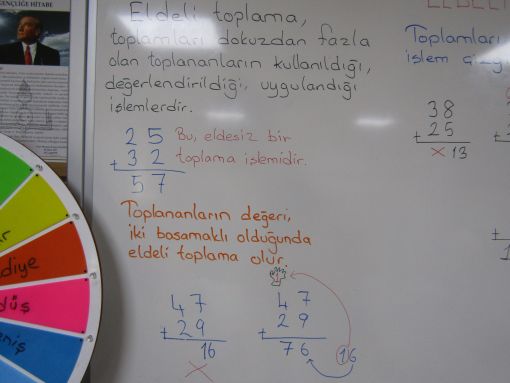 GENÇLİĞE HİTABE
Eldeli toplama,
toplamları dokuzdan fazla
olan toplananların kullanıldığı,
değerlendirildiği, uygulandığı
işlemlerdir.
25
+ 32
57
Bu, eldesiz bir
toplama işlemidir.
Toplananların değeri,
iki basamaklı olduğunda
eldeli toplama olur.
47
+ 29
16
X
1
47
+ 29
76
16
ELDELİ
Toplamları
işlem
38
+ 25
X 13
diye